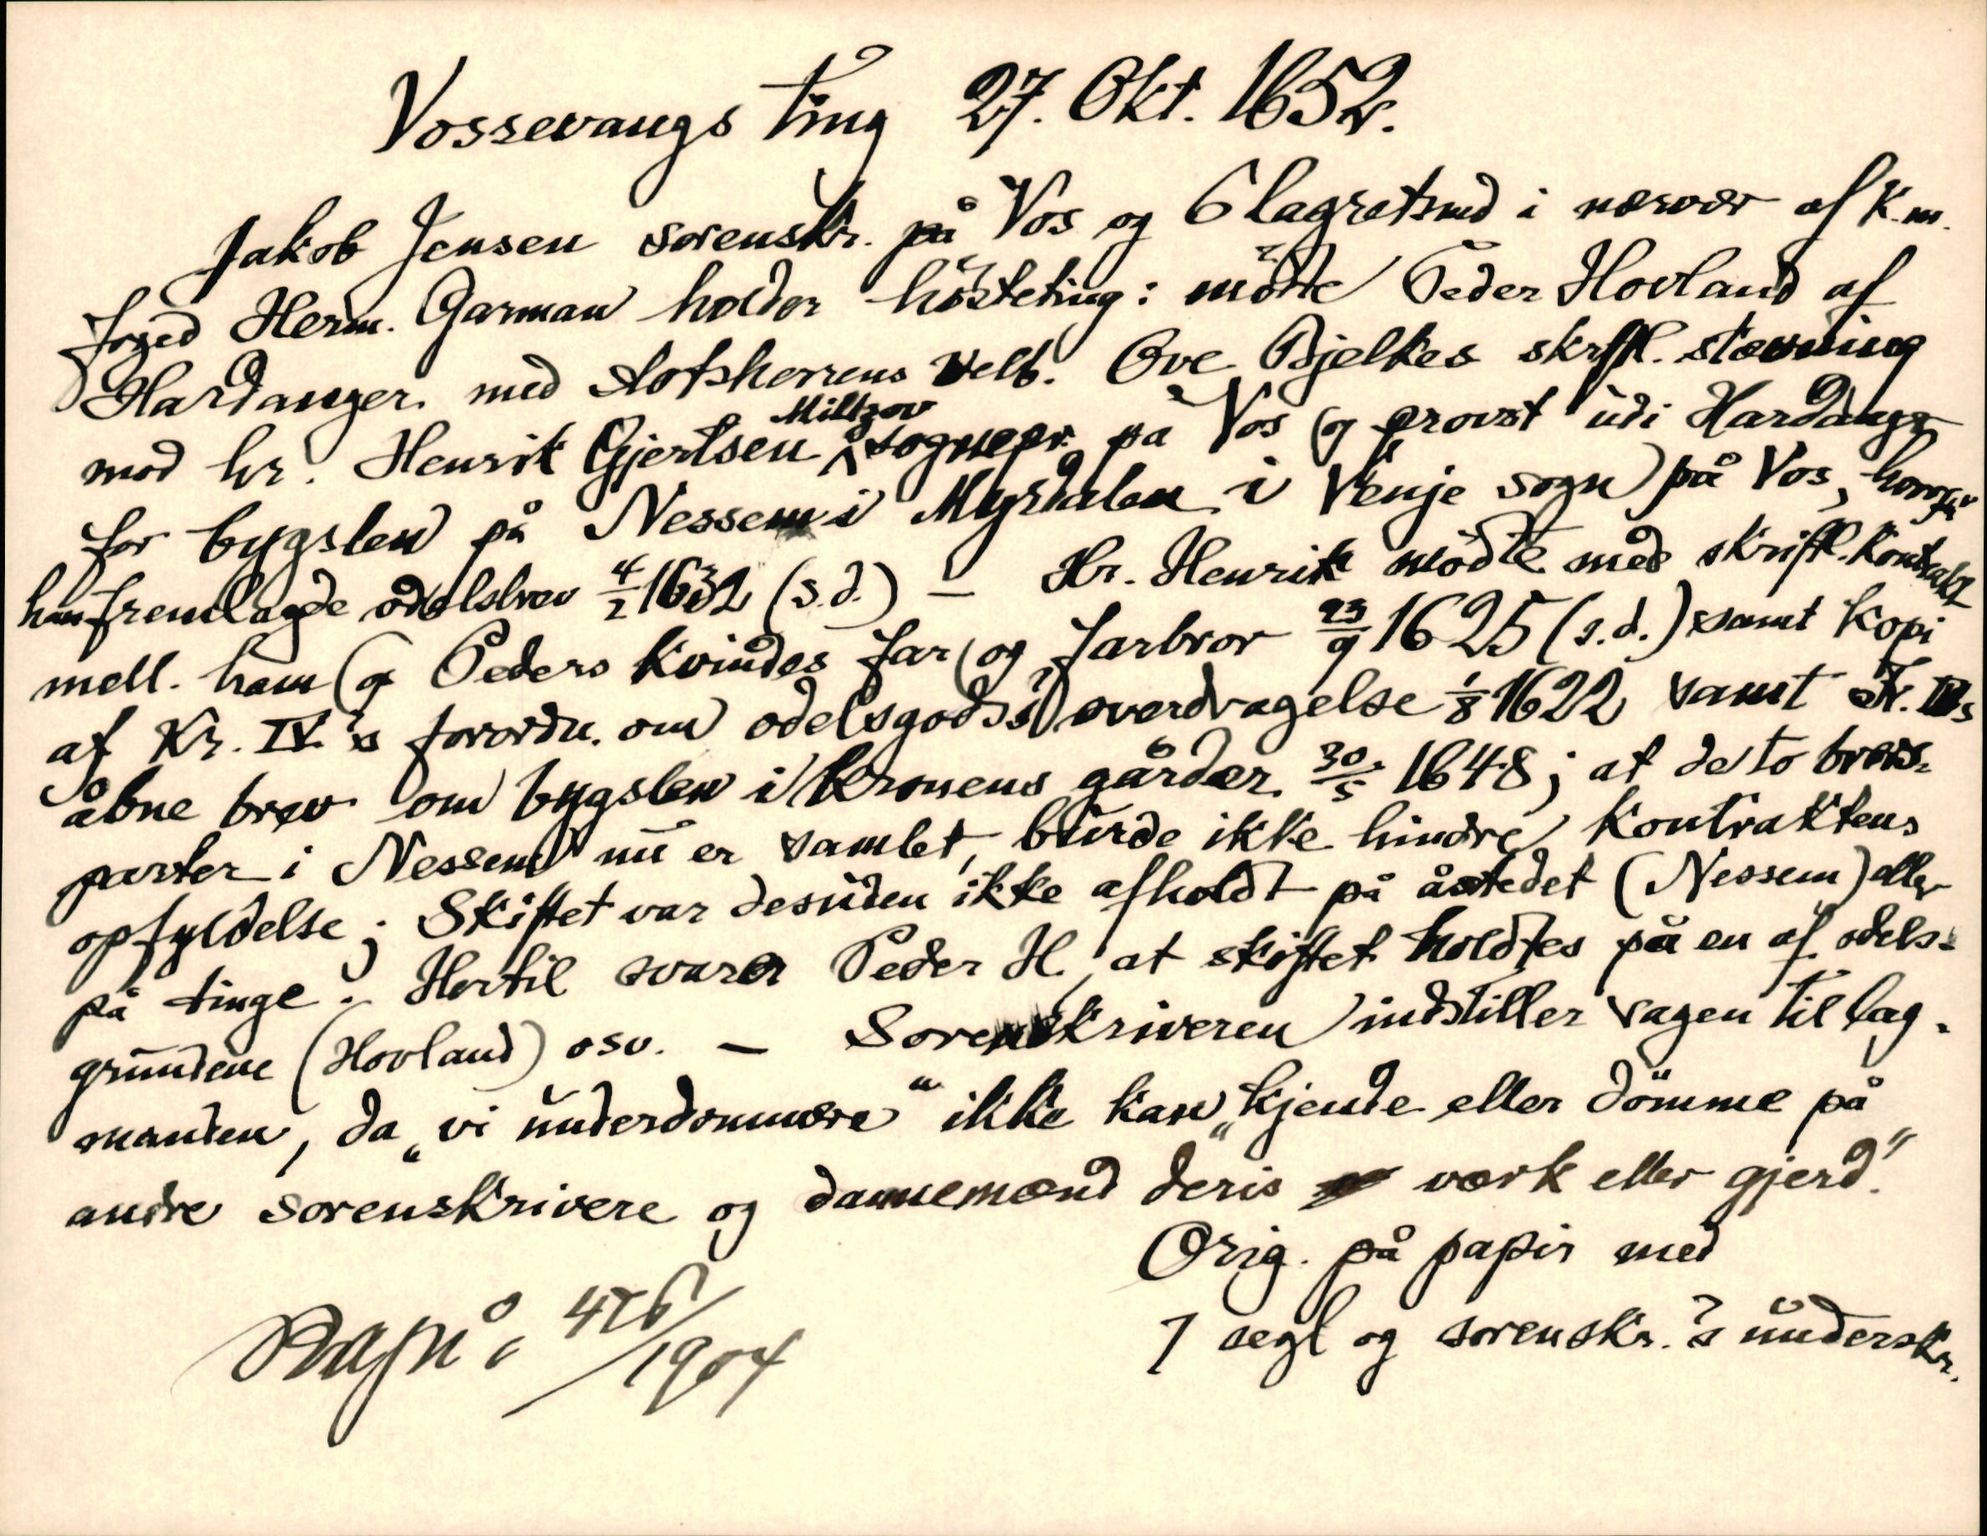 Vossevangs ting 27. Okt. 1652.
Jakob Jensen sorenskr. på Vos og 6 lagretsmd i nærvær af k. m.
foged Herm. Garman holder hösteting: mödte Peder Hovland af
Hardanger med slotsherrens velb. Ove Bjelkes skrftl. stævning
mod hr. Henrik Gjertsen Miltzov sognepr. på Vos og provst udi Hardanger
for bygslen på Nessem i Myrdalen i Vinje sogn på Vos, hvorpå
han fremlagde odelsbrev 4/2 1632 (s.d.) — Hr. Henrik mödte med skriftl. kontrakt
mell. ham og Peders kvindes far og farbror 23/9 1625 (s.d.) samt kopi
af Kr. IV's forordn. om odelsgodsis overdragelse 1/8 1622 samt Fr. III's
åbne brev om bygslen i kronens gårder 30/5 1648; at de to brors-
parter i Nessem nu er samlet, burde ikke hindre kontraktens
opfyldelse; Skiftet var desuden ikke afholdt på åstedet (Nessem) eller
på tinge. Hertil svarer Peder H. at skiftet holdtes på en af odels-
grundene (Hovland) osv. — Sorenskriveren indstiller sagen til lag-
manden, da „vi underdommere“ ikke kan „kjende eller dömme på
andre sorenskrivere og dannemænd deris værk eller gjerd.“
Orig. på papir med
7 segl og sorenskr.'s underskr.
476/1904